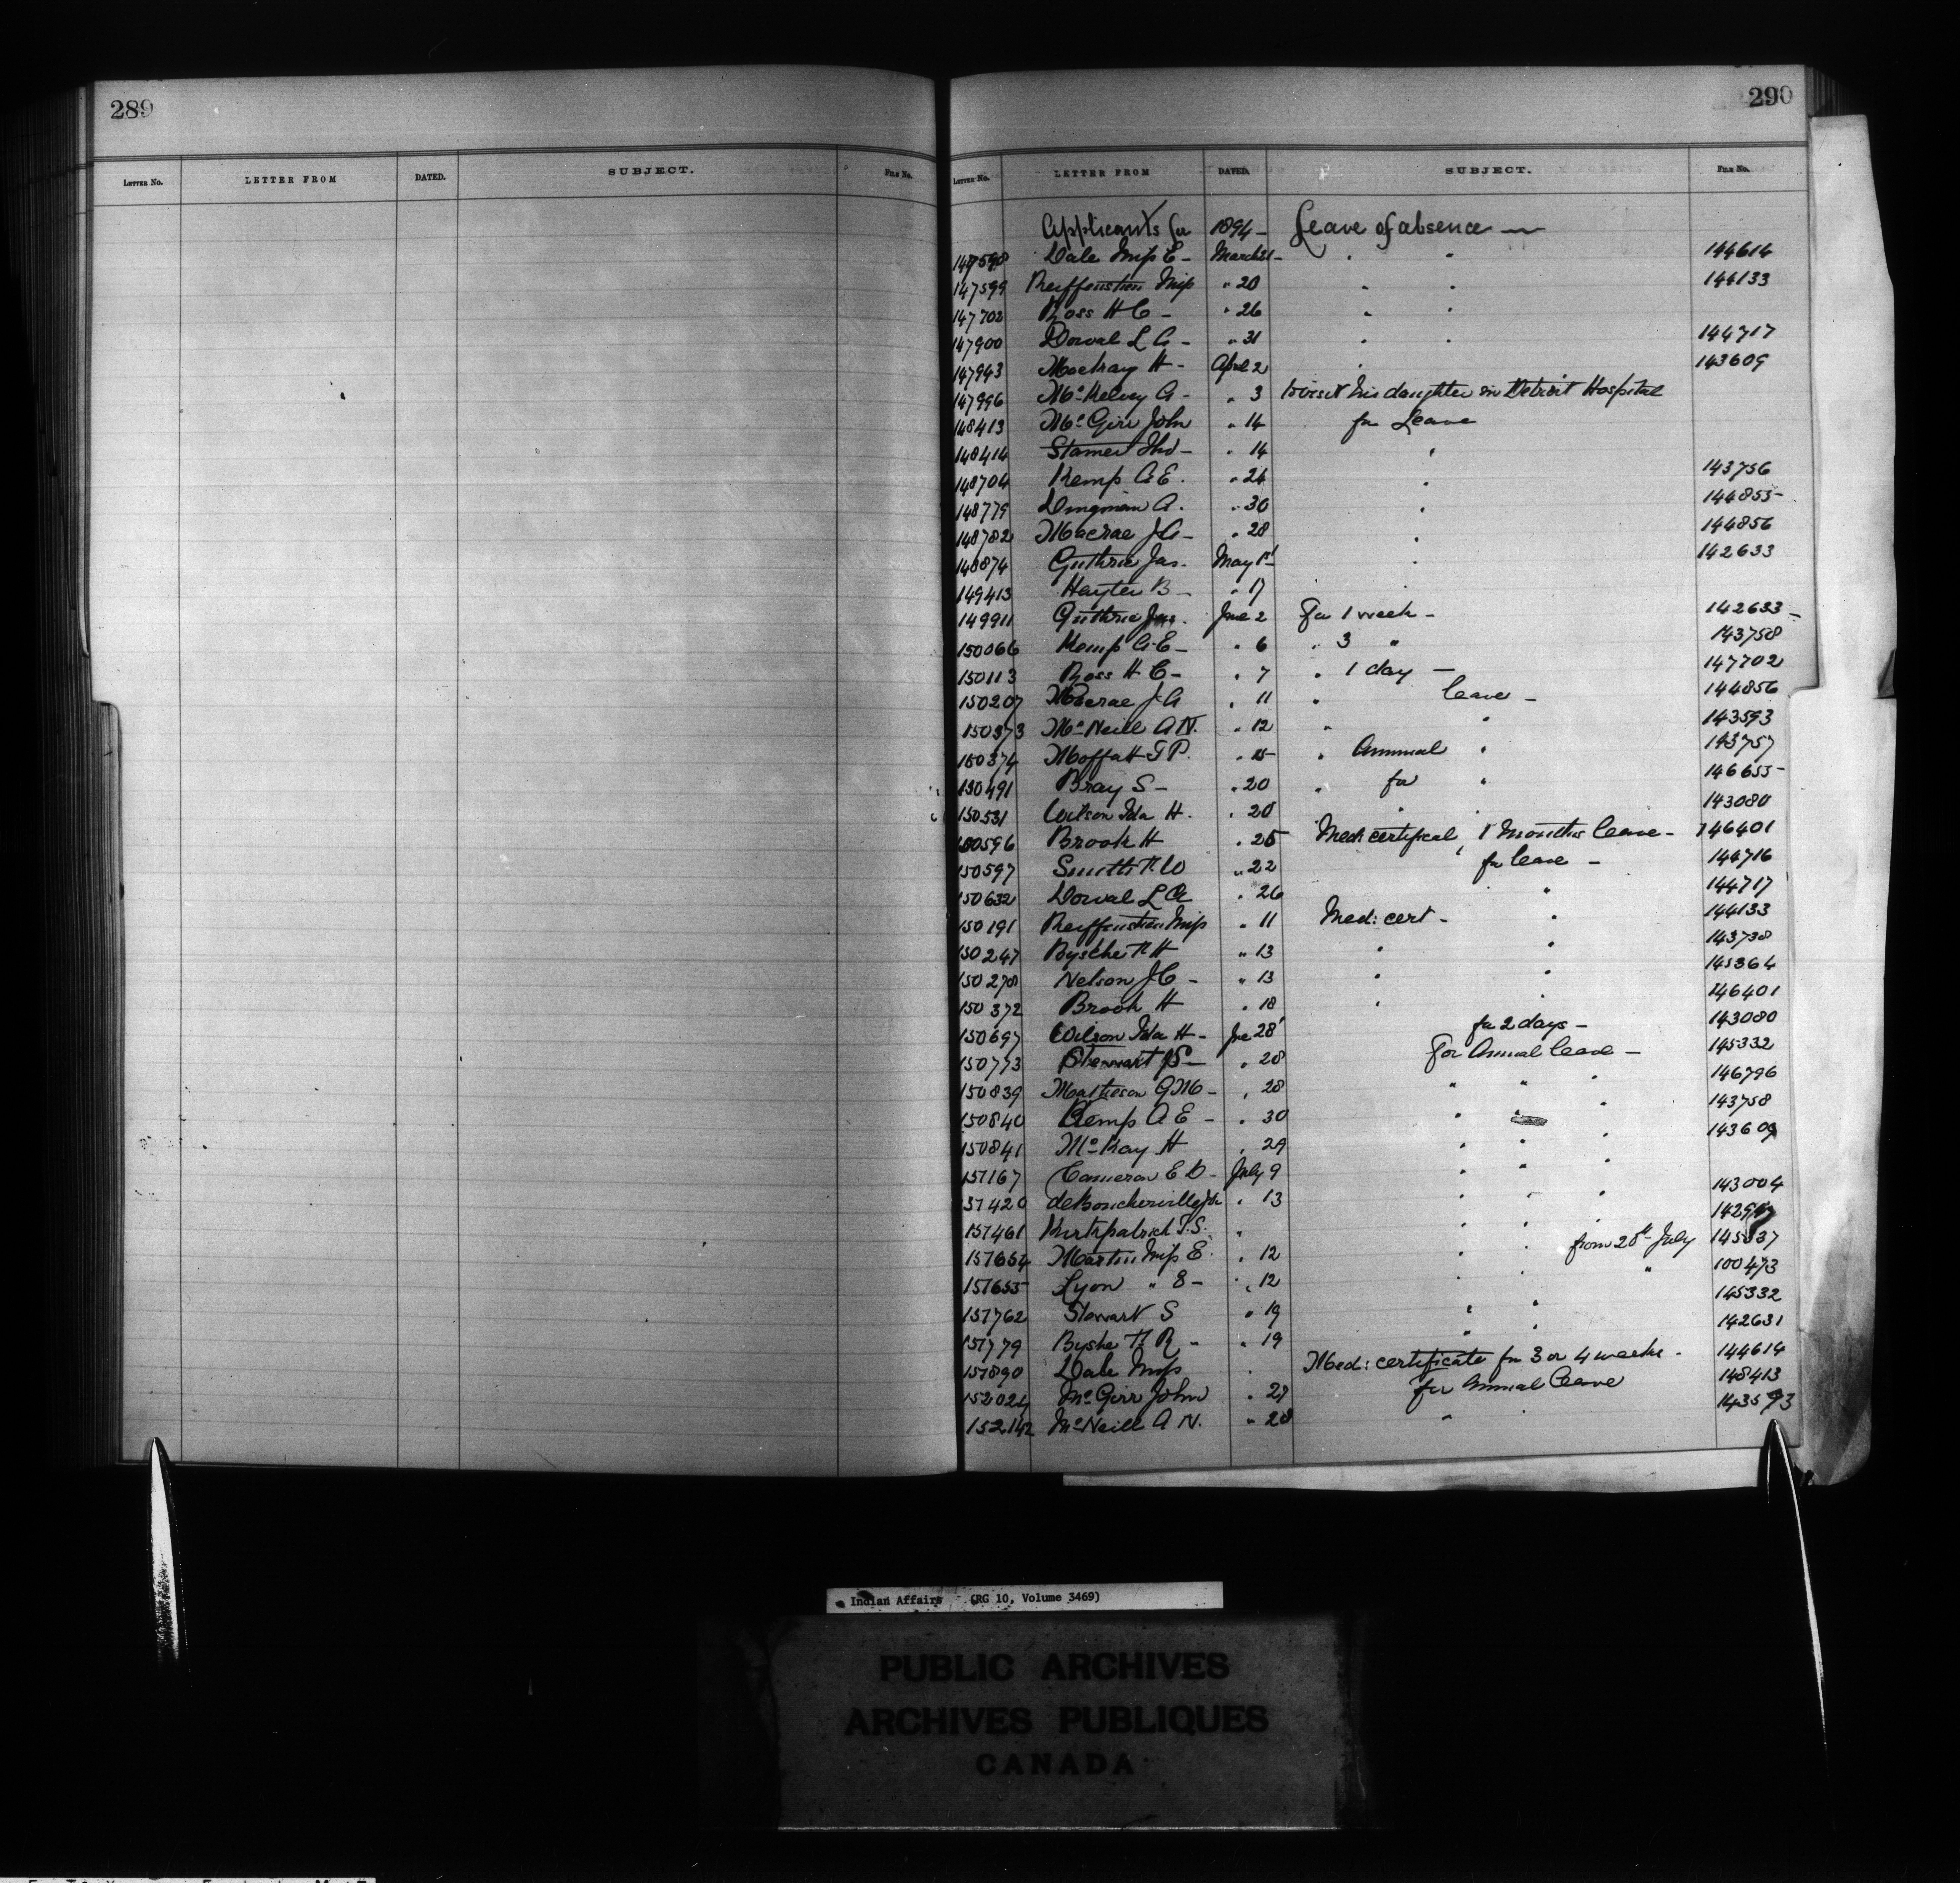 289
290
LETTER No. LETTER FROM DATED. SUBJECT. FILE No.
LETTER No. LETTER FROM DATED. SUBJECT. FILE No.
Applicants for 1894 - Leave of absence -
147598 Dale Miss E - March 21 - " " 144614
147599 Reiffenstien Miss " 20 " " 144133
147702 Ross H C - " 26 " "
147900 Dorval L A - " 31 " " 144717
147943 Mackay H - April 2 " 143609
147996 McKelvey A - " 3 to visit his daughter in Detroit Hospital
148413 McGirr John " 14 for Leave
148414 " 14 "
148704 Kemp A E. " 24 " 143756
148779 Dingman A. " 30 " 144855-
148782 Macrae J A - " 28 " 144856
148874 Guthrie Jas. May 1st " 142633
149413 Hayter B - " 17 "
149911 Guthrie Jas. June 2 For 1 week - 142633 -
150066 Kemp A E - " 6 " 3 " 143758
150113 Ross H C - " 7 " 1 day - 147702
150207 Macrae J A " 11 " leave - 144856
150373 McNeill A N. " 12 " " 143593
150374 Moffatt T P. " 15 " Annual " 143757
150491 Bray S - " 20 " for " 146655-
150531 Wilson Ida H. " 20 " " 143080
150596 Brook H " 25 Med: certifical, 1 Months leave - 146401
150597 Smith " 22 for leave - 144716
150632 Dorval L A " 26 " " 144717
150191 Reiffenstien Miss " 11 Med: cert - " 144133
150247 Bysche " 13 " " 143738
150278 Nelson J C - " 13 " " 145364
150372 Brook H " 18 " " 146401
150697 Wilson Ida H - Jne 28 for 2 days - 143080
150773 Stewart S - " 28 For Annual leave - 145332
150839 Matheson G M - " 28 " " " 146796
150840 Kemp A E - " 30 " " " 143758
150841 McKay H " 29 " " " 143609
151167 Cameron E D - July 9 " " "
151420 deBoucherville " 13 " " " 143004
151461 Kirkpatrick T. S. " " " "
151654 Martin Miss E. " 12 " " from 28th July 145337
151655 Lyon " E - " 12 " " " 100473
151762 Stewart S " 19 " " 145332
151779 Byshe " 19 " " 142631
151890 Dale Miss " Med: certificate for 3 or 4 weeks - 144614
152024 McGirr John " 27 for Annual leave 148413
152142 McNeill A N. " 28 " " 143593
Indian Affairs (RG 10, Volume 3469)
PUBLIC ARCHIVES
ARCHIVES PUBLIQUES
CANADA